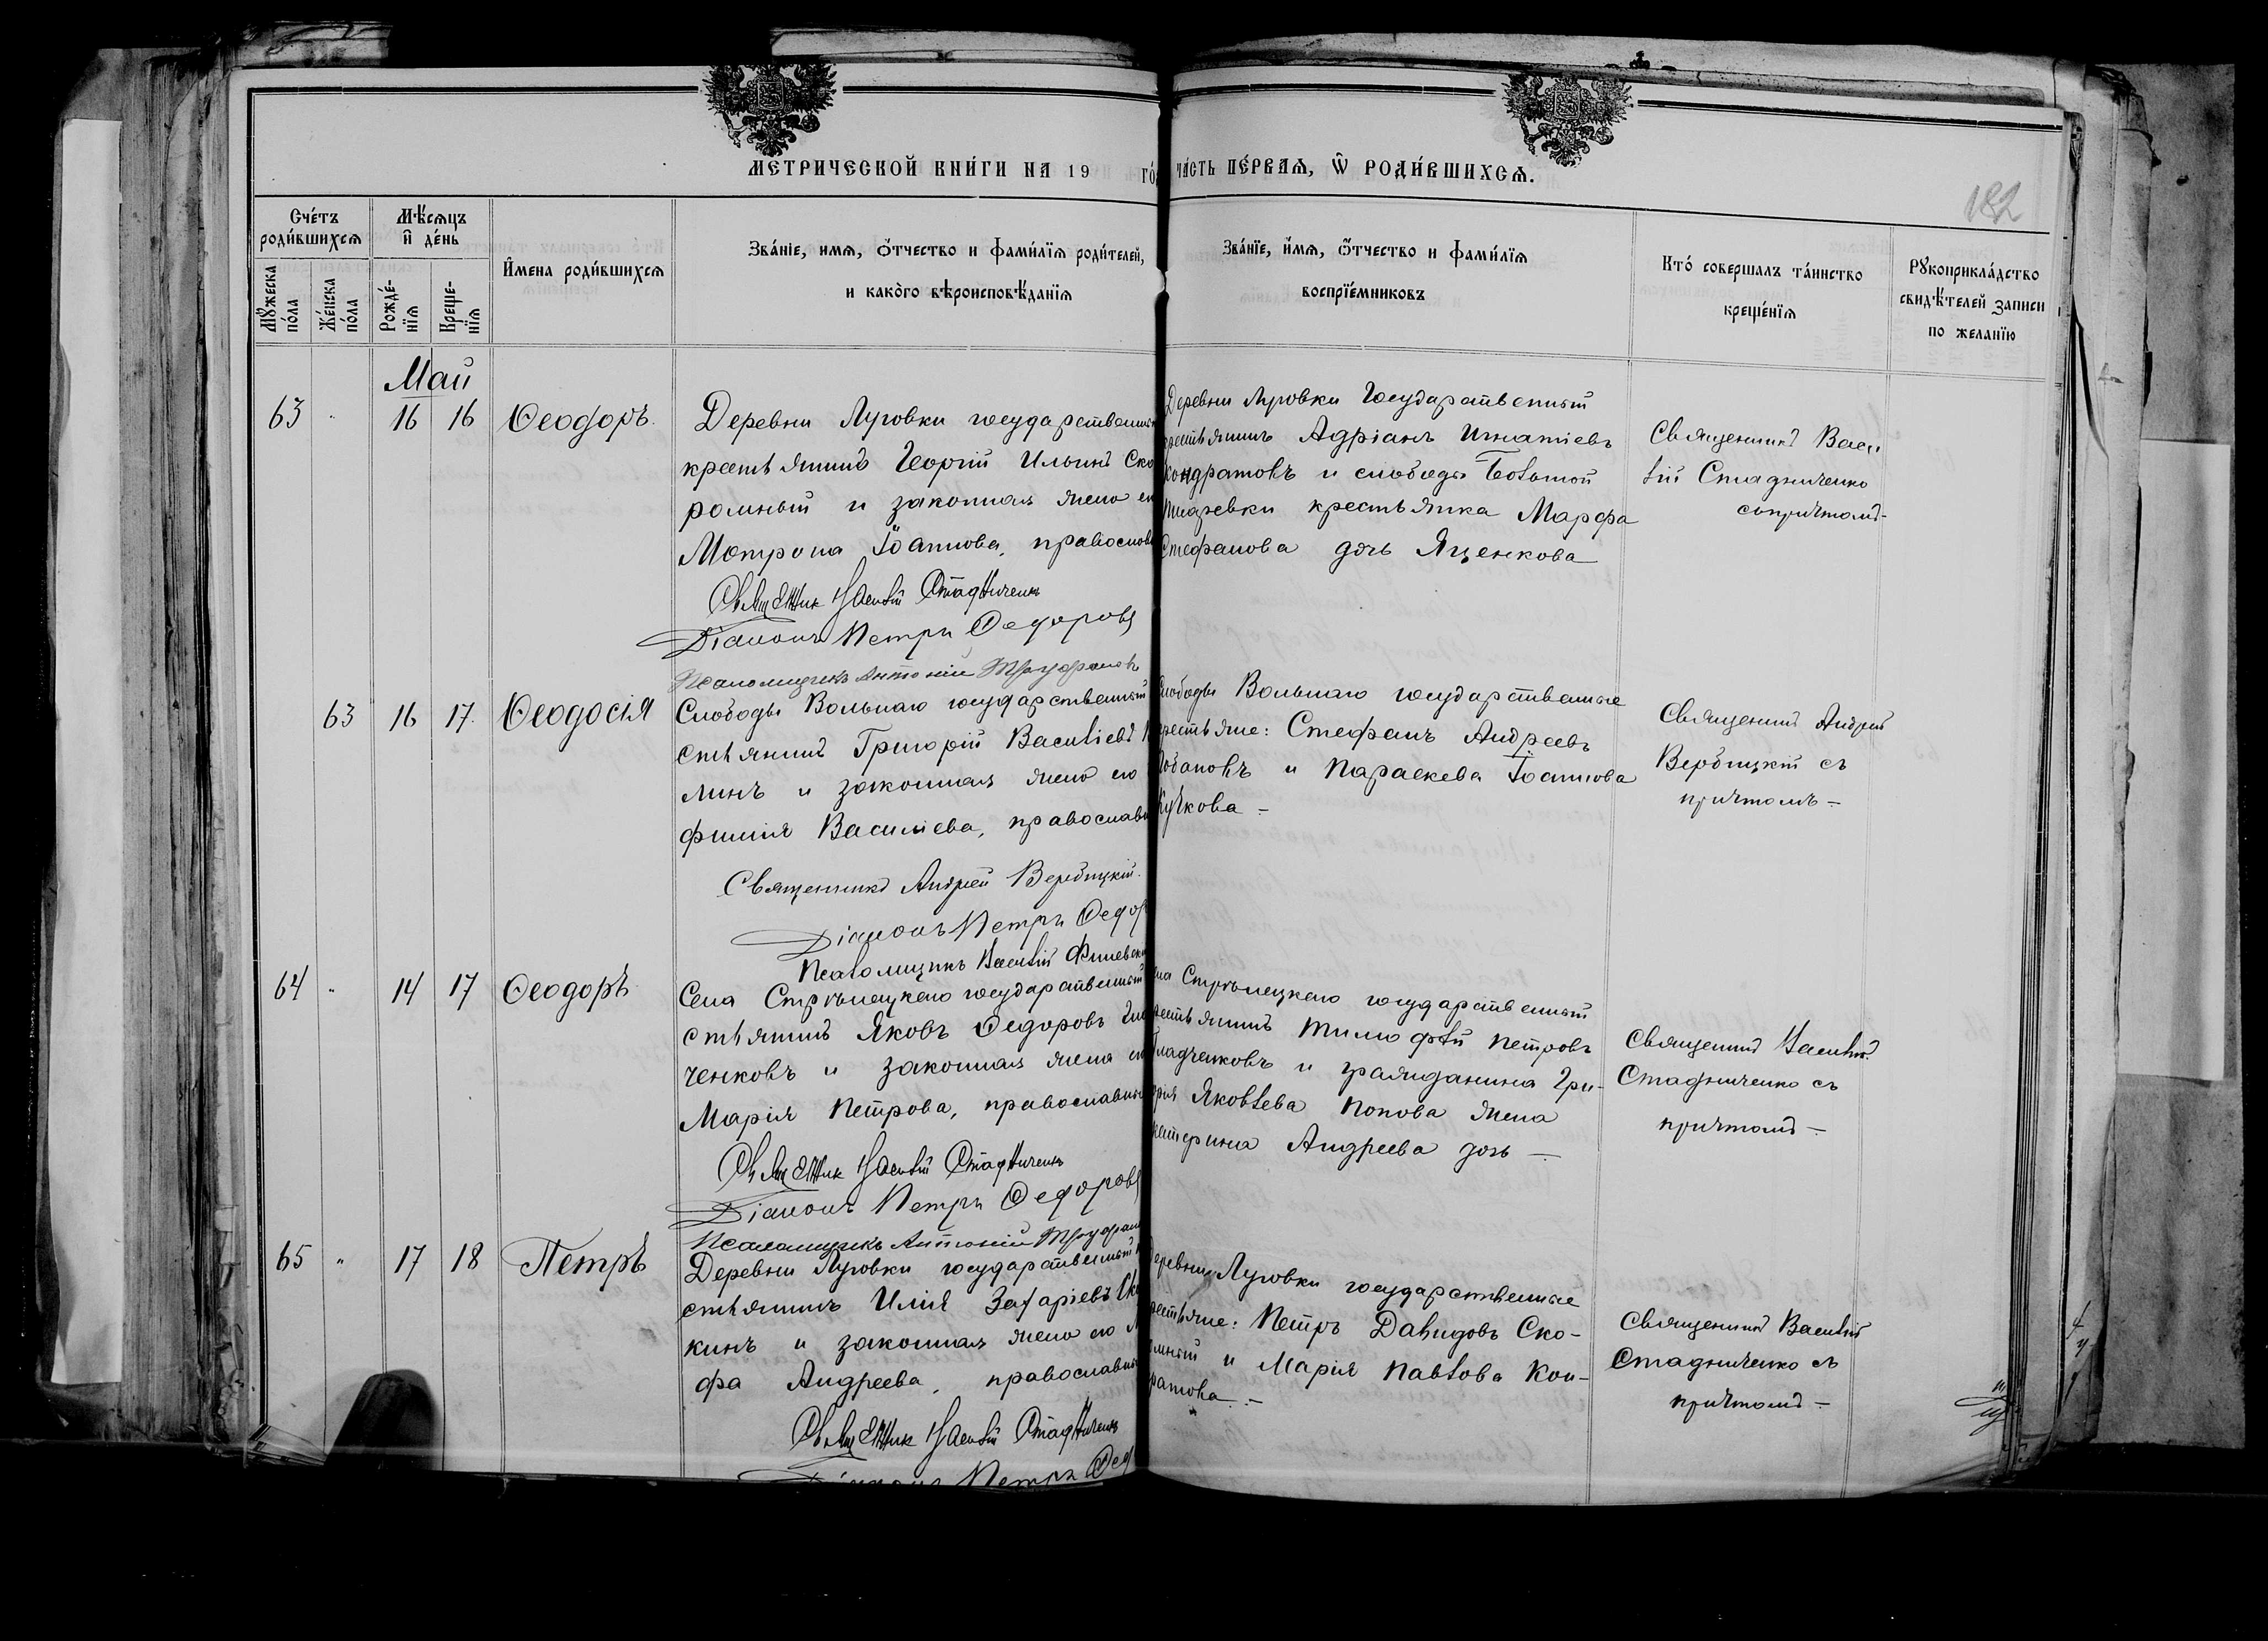 МЕТРИЧЕСКОЙ КНИ́ГИ НА 19 ГО́
ЧА́СТЬ ПЕ́РВАѦ, Ѿ РОДИ́ВШИХСѦ.
182
Сче́тъ родившихсѧ
Мѣ́сѧцъ и де́нь
И́мена роди́вшихсѧ
Зва́нїе, имѧ, ѻ́тчество и фами́лїѧ роди́телей,
и како́го вѣроисповѣ́данїѧ
Зва́нїе, и́мѧ, ѻ́тчество и фами́лїѧ
воспрїе́мниковъ
Кто́ совершалъ та́инство
креще́нїѧ
Рꙋкоприкла́дство
свидѣ́телей записи
по желанїю
Мꙋжеска по́ла
Же́нска по́ла
Рожде́-нїѧ
Креще-нїѧ
Май
63 " 16 16 Ѳеодоръ
Деревни Луговки государственный
крестьянинъ Георгій Ильинъ Ско
ромный и законная жена ег
Мотрона Іоаннова, православ
Священник Василій Стадниченко
Діаконъ Петръ Федоровъ
Псаломщикъ Антоній Труфановъ
Деревни Луговки Государственный
крестьянинъ Адріанъ Игнатіевъ
Кондратовъ и слободы Большой
Писаревки крестьянка Марфа
Стефанова дочь Яценкова
Священникъ Васи
лій Стадниченко
съ причтомъ-
63 16 17. Ѳеодосія
Слободы Вольнаго государственный
стьянинъ Григорій Василіевъ
линъ и законная жена его
фимія Василіева, православ
Священникъ Андрей Вербицкій.
Діаконъ Петръ Федор
Псаломщикъ Василій Филевск
Слободы Вольнаго государственные
крестьяне: Стефанъ Андреевъ
Лобановъ и Параскева Іоаннова
Кучкова -
Священникъ Андрей
Вербицкій съ
причтомъ -
64 " 14 17 Ѳеодоръ
Села Стрѣлецкаго государственный
стьянинъ Яковъ Федоровъ Гла
ченковъ и законная жена ег
Марія Петрова, православны
Священник Василій Стадниченко
Діаконъ Петръ Федоровъ
Псаломщикъ Антоній Труфан
ла Стрѣлецкаго государственный
рестьянинъ Тимофей Петровъ
Гладченковъ и гражданина Гри-
горія Яковлева Попова жена
катерина Андреева дочь -
Священникъ Василій
Стадниченко съ
причтомъ -
65 " 17 18 Петръ
Деревни Луговки государственный
стьянинъ Илія Захаріевъ
кинъ и законная жена его М
фа Андреева, православны
Священник Василій Стадниченко
Діаконъ Петръ Фед
Деревни Луговки государственные
рестьяне: Петръ Давидовъ Ско-
омный и Марія Павлова Кон-
ратова. -
Священникъ Василій
Стадниченко съ
причтомъ -